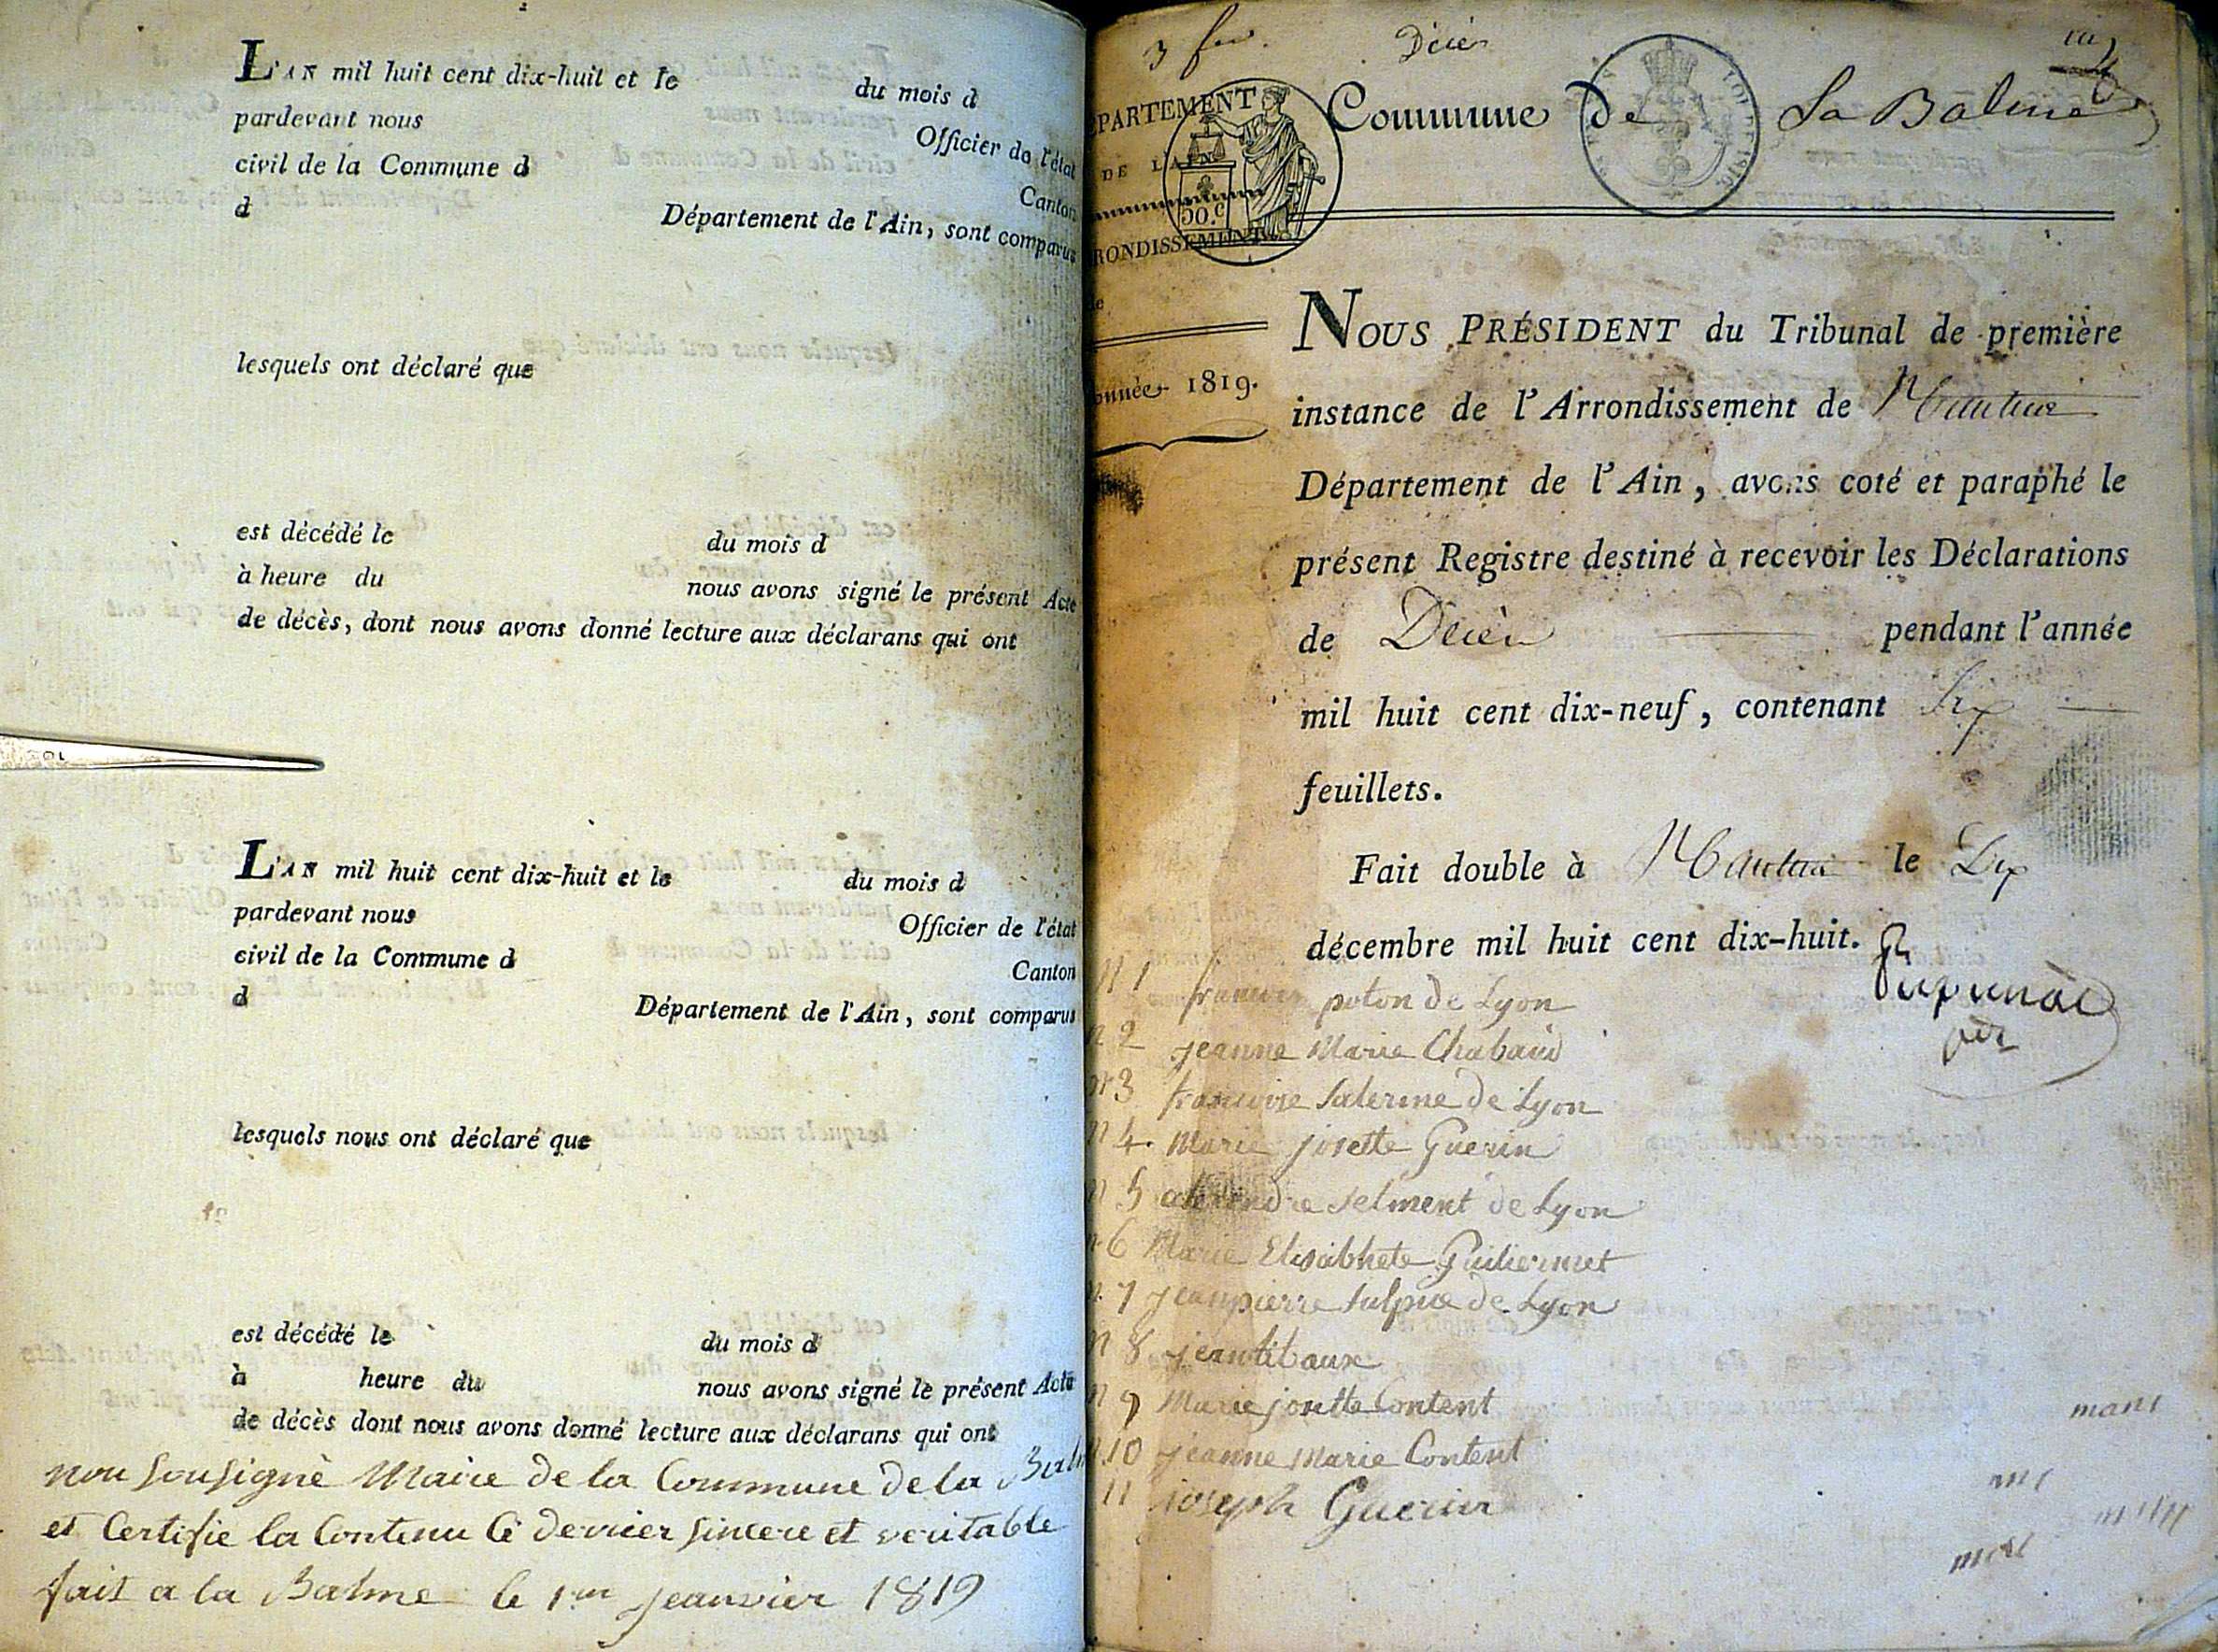 L'AN mil huit cent dix-huit et le du mois d
pardevant nous Officier de l'état
civil de la Commune d Canton
d Département de l'Ain, sont comparus
lesquels ont déclaré que
est décédé le du mois d
à heure du nous avons signé le présent Acte
de décès, dont nous avons donné lecture aux déclarans qui ont
L'AN mil huit cent dix-huit et le du mois d
pardevant nous Officier de l'état
civil de la Commune d Canton
d Département de l'Ain, sont comparus
lesquels nous ont déclaré que
est décédé le du mois d
à heure du nous avons signé le présent Acte
de décès dont nous avons donné lecture aux déclarans qui ont
nou sousigné Maire de la Commune de la Balm
et Certifie la Contenu Ci dernier sincere et veritable
fait a la Balme le 1er jeanvier 1819
3 Décès
Commune de La Balme
PARTEMENT
DE L'AIN
RONDISSEMENT
année 1819.
NOUS PRÉSIDENT du Tribunal de première
instance de l'Arrondissement de Nantua
Département de l'Ain, avons coté et paraphé le
présent Registre destiné à recevoir les Déclarations
de Décès pendant l'année
mil huit cent dix-neuf, contenant Six
feuillets.
Fait double à Nantua le Dix
décembre mil huit cent dix-huit.
N 1 francois poton de Lyon
n 2 jeanne Marie Chabaud
n 3 francoise Salerme de Lyon
n 4. Marie josette Guerin
n 5 alexendre selment de Lyon
n 6 Marie Elisabhete Guiliermet
n. 7 jeanpierre Sulpice de Lyon
n 8 jean titaux
n 9 Marie josette Content
n. 10 jeanne Marie Content
11 joseph Guerin